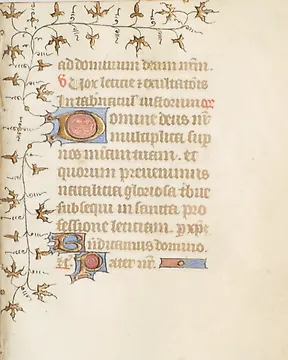 ad dominum deum nr̄m.
V̄ Vox leticie ⁊ exultatōis
In tab̄nacul' iustorum or
Domine deus nr̄
multiplica sup
nos misc̄am tuam. et
quorum preuenimus
natalicia gloriosa t̄bue
subsequi in sancta pro
fessione leticiam. p xp̄z
Bn̄dicamus domino.
Pater nr̄.